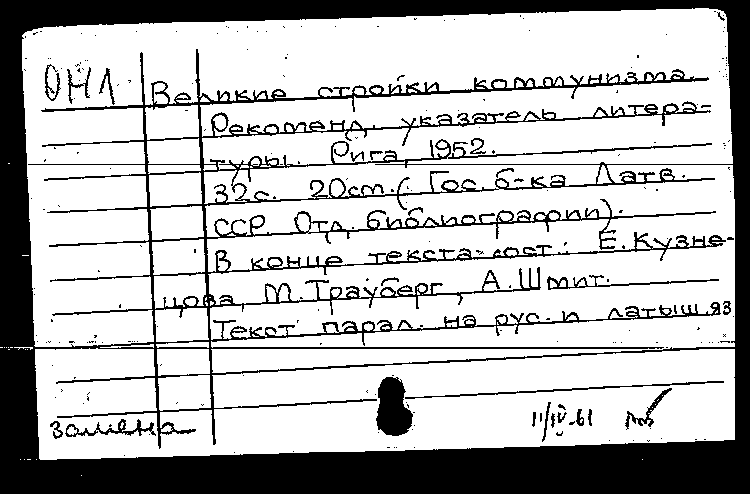 ОН1 Великие стройки коммунизма.
Рекоменд. указатель литера-
туры. Рига, 1952.
32с. 20см. (Гос. б-ка Латв.
ССР. Отд. библиографии).
В конце текста сост.: Е. Кузне-
цова, М. Трауберг, А. Шмит.
Текст парал. на рус. и латыш. яз
замена 11/IV-61